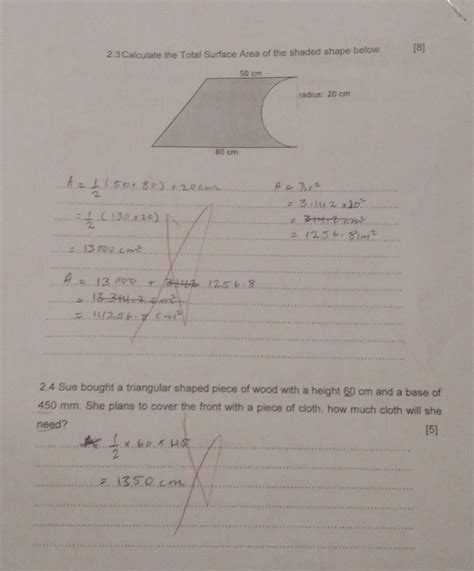 2.3 Calculate the Total Surface Area of the shaded shape below. [8]
50 cm
radius: 20 cm
80 cm
A = 1/2 (50 + 80) × 20cm
= 1/2 (130 × 20)
= 1300 cm²
A = r²
= 3.142 × 20²
= 314.2 cm²
= 1256.8 cm²
A = 13 000 + 3142 1256.8
= 13 314.2 cm²
= 14256.8 cm²
2.4 Sue bought a triangular shaped piece of wood with a height 60 cm and a base of
450 mm. She plans to cover the front with a piece of cloth, how much cloth will she
need? [5]
1/2 × 60 × 45
= 1350 cm